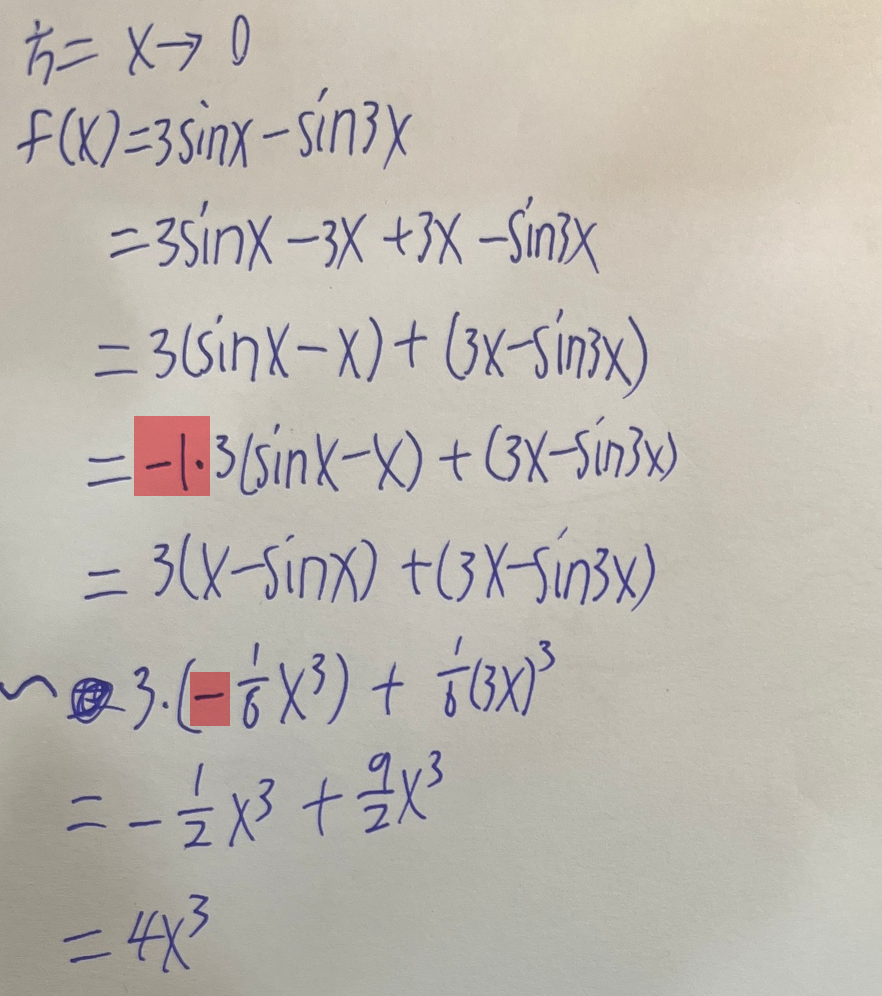 方二 x→0
f(x)=3sinx-sin3x
=3sinx-3x+3x-sin3x
=3(sinx-x)+(3x-sin3x)
=-1·3(sinx-x)+(3x-sin3x)
=3(x-sinx)+(3x-sin3x)
~3·(-1/6x³)+1/6(3x)³
=-1/2x³+9/2x³
=4x³